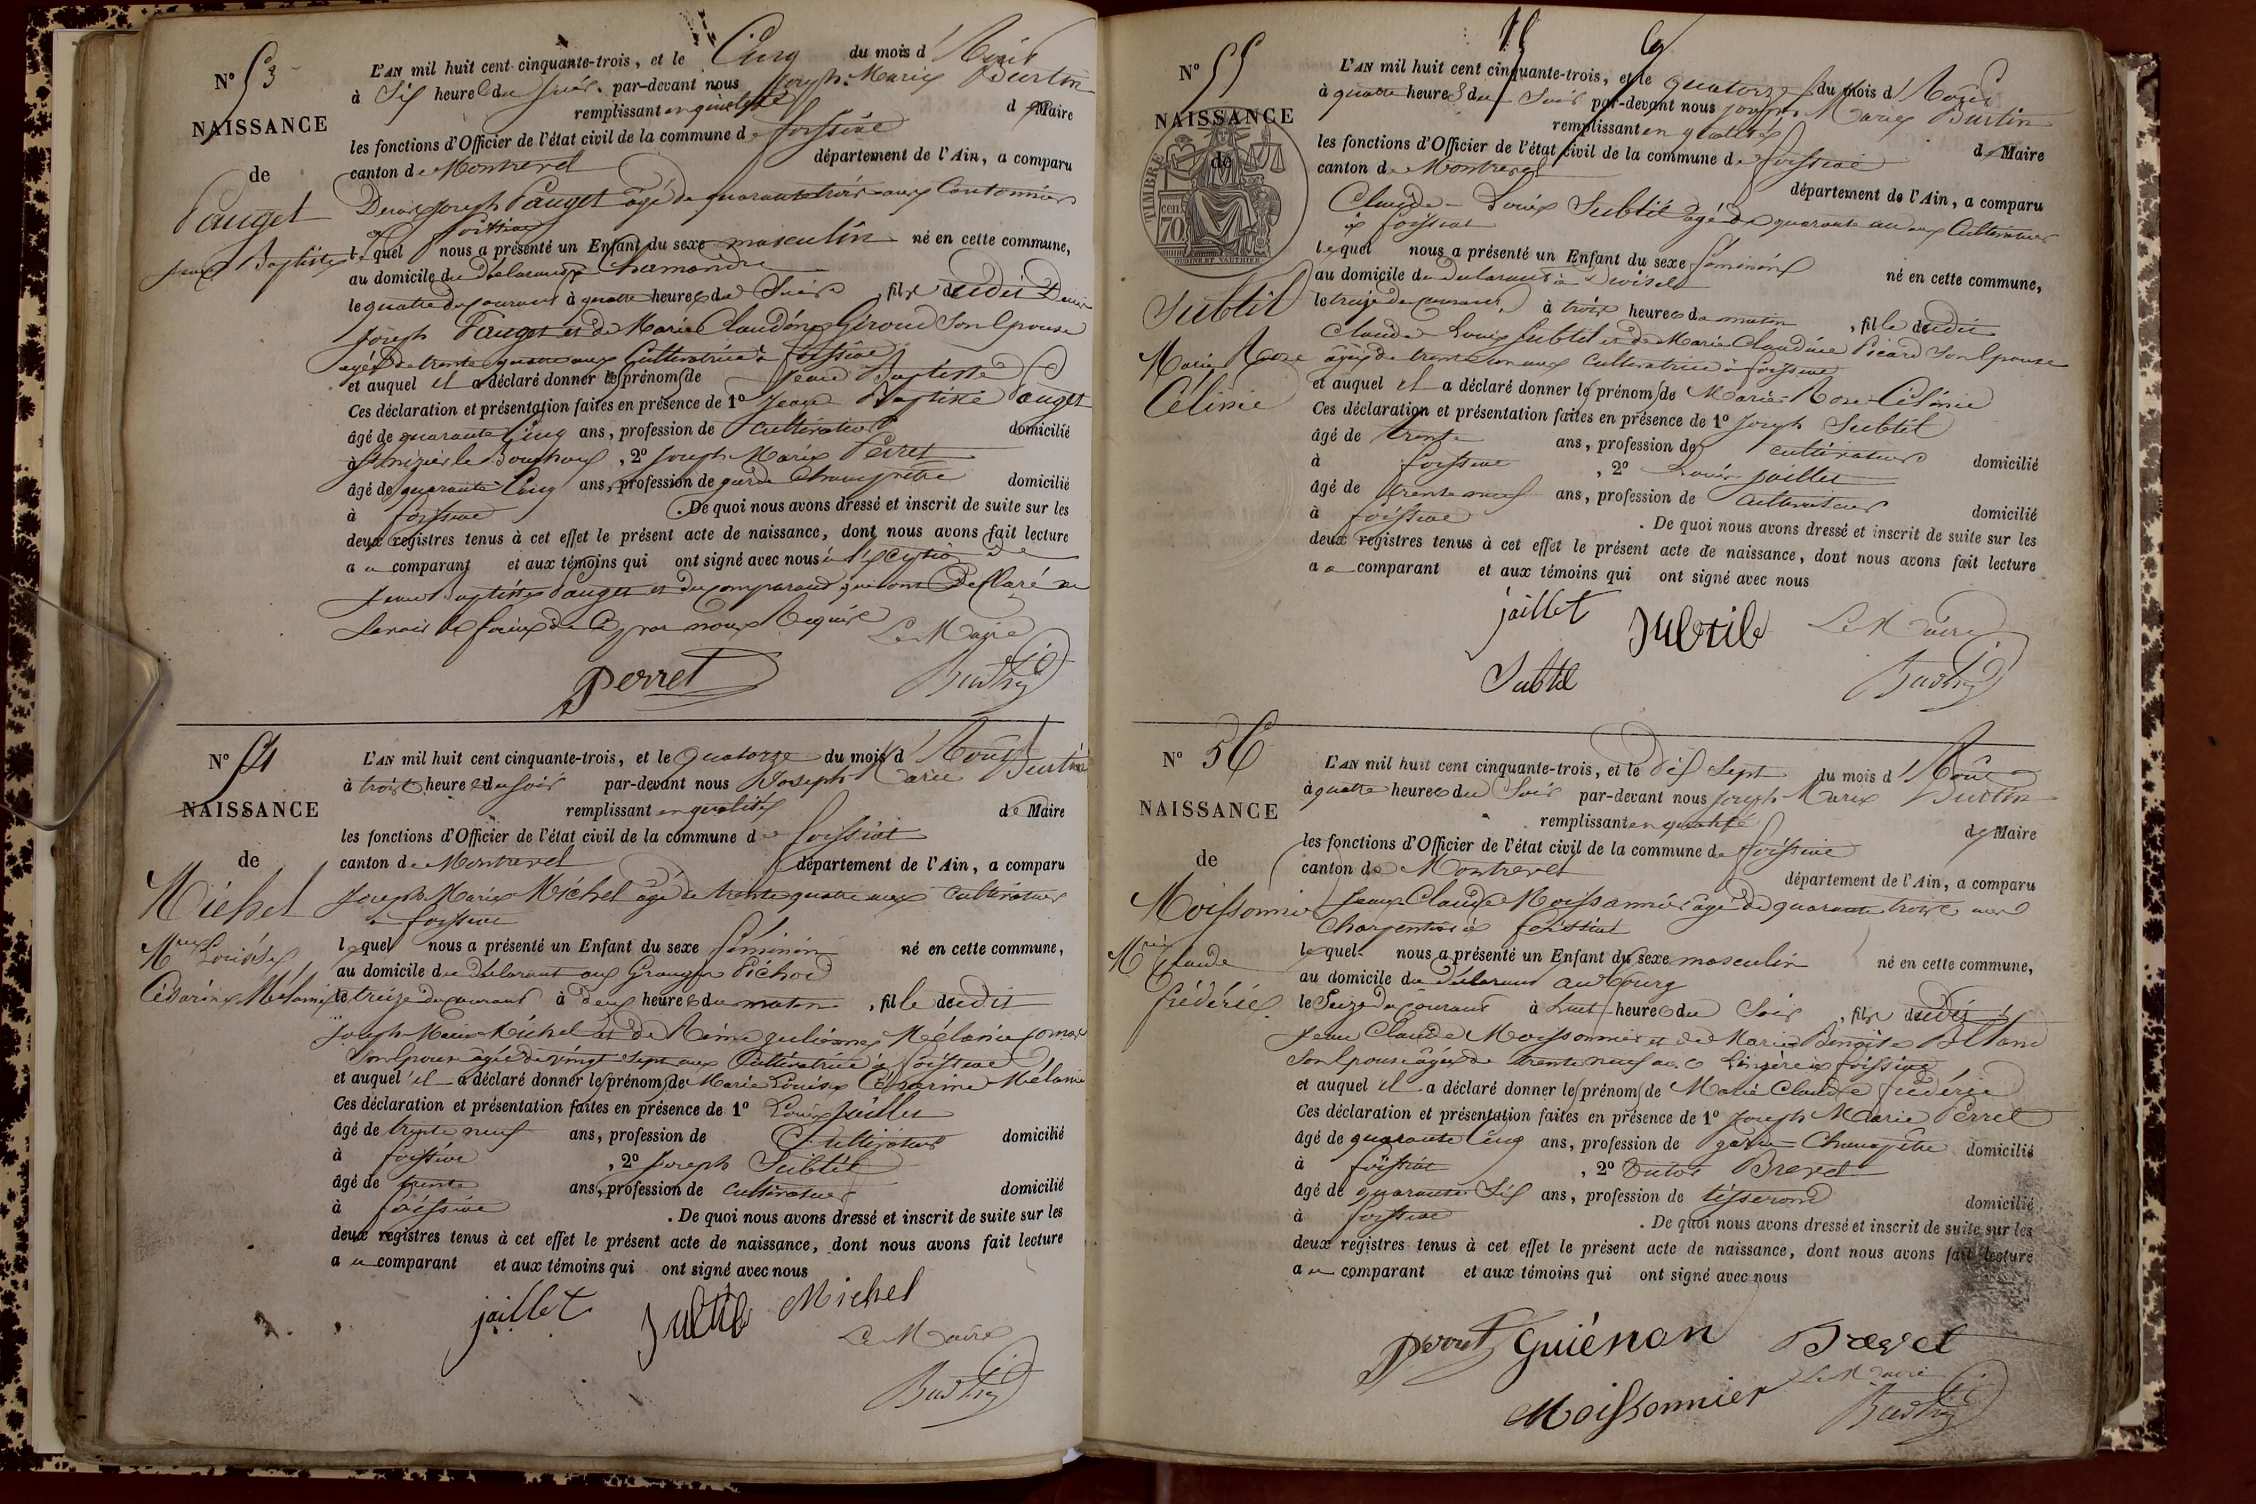 N° 53
NAISSANCE
de
Pauget
Jean Baptiste
L'AN mil huit cent cinquante-trois, et le Cinq du mois d'Août
à Six heures du Soir par-devant nous Joseph Marie Burtin
remplissant en qualité de Maire
les fonctions d'Officier de l'état civil de la commune de foissiat
canton de Montrevel département de l'Ain, a comparu
Denis Joseph Pauget âgé de quarante trois ans Cantonnier
à foissiat
lequel nous a présenté un Enfant du sexe masculin né en cette commune,
au domicile du déclarant
le quatre du courant à quatre heures du Soir, fils dudit Denis
Joseph Pauget et de Marie Claudine Giroud Son épouse
agée de trente quatre ans Cultivatrice à foissiat
et auquel il a déclaré donner les prénoms de Jean Baptiste
Ces déclaration et présentation faites en présence de 1° Jean Baptiste Pauget
âgé de quarante Cinq ans, profession de Cultivateur domicilié
à St nizier le Bouchoux, 2° Joseph Marie Perret
âgé de quarante Cinq ans, profession de garde Champêtre domicilié
à foissiat. De quoi nous avons dressé et inscrit de suite sur les
deux registres tenus à cet effet le présent acte de naissance, dont nous avons fait lecture
au comparant et aux témoins qui ont signé avec nous à l'exception de
Jean Baptiste Pauget et du comparant qui ont Déclaré ne
Savoir le faire de ce par nous Requis
Le Maire
Perret
Burtin
N° 54
NAISSANCE
de
Michel
Mie Louise
Césarine Mélanie
L'AN mil huit cent cinquante-trois, et le quatorze du mois d'Août
à trois heures du Soir par-devant nous Joseph Marie Burtin
remplissant en qualité de Maire
les fonctions d'Officier de l'état civil de la commune de foissiat
canton de Montrevel département de l'Ain, a comparu
Joseph Marie Michel âgé de trente quatre ans cultivateur
à foissiat
lequel nous a présenté un Enfant du sexe féminin né en cette commune,
au domicile du déclarant aux Granges
le treize du courant à deux heures du matin, fille dudit
Joseph Marie Michel et de Julienne Mélanie
Son épouse agée de vingt Sept ans Cultivatrice à foissiat
et auquel il a déclaré donner les prénoms de Marie Louise Césarine Mélanie
Ces déclaration et présentation faites en présence de 1° Louis Jaillet
âgé de trente neuf ans, profession de Cultivateur domicilié
à foissiat, 2° Joseph Subtil
âgé de trente ans, profession de cultivateur domicilié
à foissiat. De quoi nous avons dressé et inscrit de suite sur les
deux registres tenus à cet effet le présent acte de naissance, dont nous avons fait lecture
au comparant et aux témoins qui ont signé avec nous
jaillet Subtil Michel
Le Maire
Burtin
N° 55
NAISSANCE
de
TIMBRE
cen 70
Subtil
Marie Rose
Célinie
L'AN mil huit cent cinquante-trois, et le quatorze du mois d'Août
à quatre heures du Soir par-devant nous Joseph Marie Burtin
remplissant en qualité de Maire
les fonctions d'Officier de l'état civil de la commune de foissiat
canton de Montrevel département de l'Ain, a comparu
Claude Louis Subtil âgé de quarante un ans Cultivateur
à foissiat
lequel nous a présenté un Enfant du sexe féminin né en cette commune,
au domicile du déclarant à
le treize du courant, à trois heures du matin, fille dudit
Claude Louis Subtil et de Marie Claudine Picard Son épouse
âgée de trente ans cultivatrice à foissiat
et auquel il a déclaré donner les prénoms de Marie Rose Célinie
Ces déclaration et présentation faites en présence de 1° Joseph Subtil
âgé de trente ans, profession de cultivateur domicilié
à foissiat, 2° Louis jaillet
âgé de trente neuf ans, profession de cultivateur domicilié
à foissiat. De quoi nous avons dressé et inscrit de suite sur les
deux registres tenus à cet effet le présent acte de naissance, dont nous avons fait lecture
au comparant et aux témoins qui ont signé avec nous
jaillet Subtil Le Maire
Subtil Burtin
N° 56
NAISSANCE
de
Moissonnier
Mie Claude
frédéric
L'AN mil huit cent cinquante-trois, et le dix Sept du mois d'Août
à quatre heures du Soir par-devant nous Joseph Marie Burtin
remplissant en qualité de Maire
les fonctions d'Officier de l'état civil de la commune de foissiat
canton de Montrevel département de l'Ain, a comparu
Jean Claude Moissonnier âgé de quarante trois ans
Charpentier à foissiat
lequel nous a présenté un Enfant du sexe masculin né en cette commune,
au domicile du déclarant au Bourg
le Seize du courant à huit heures du Soir, fils dudit
Jean Claude Moissonnier et de Marie Benoite
Son épouse âgée de trente neuf ans Lingère à foissiat
et auquel il a déclaré donner les prénoms de Marie Claude frédéric
Ces déclaration et présentation faites en présence de 1° Joseph Marie Perret
âgé de quarante Cinq ans, profession de garde Champêtre domicilié
à foissiat, 2° Brevet
âgé de quarante Six ans, profession de tisserand domicilié
à foissiat. De quoi nous avons dressé et inscrit de suite sur les
deux registres tenus à cet effet le présent acte de naissance, dont nous avons fait lecture
au comparant et aux témoins qui ont signé avec nous
Perret Guiénon Brevet
Le Maire
Moissonnier Burtin